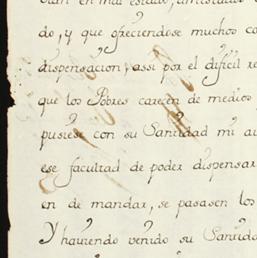 en mal estado, amistad
do, y que ofreciendose muchos co
dispensacion, assi por el dificil re
que los Pobres carecen de medios p
pusiese con su Santidad mi au
ese facultad de poder dispensar
en de mandar, se pasasen los
Y haviendo venido su Santida